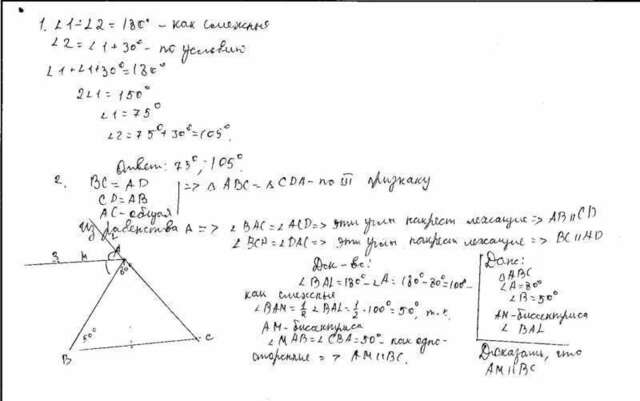 1. ∠1+∠2 = 180° – как смежные
∠2 = ∠1 + 30° – по условию
∠1 + ∠1 + 30° = 180°
2∠1 = 150°
∠1 = 75°
∠2 = 75° + 30° = 105°.
Ответ: 75°; 105°.
2. BC = AD
CD = AB
AC – общая
=> △ABC = △CDA – по III признаку
Из равенства △ => ∠BAC = ∠ACD => эти углы накрест лежащие => AB || CD
∠BCA = ∠DAC => эти углы накрест лежащие => BC || AD
3. M A
80°
50°
B C
Док-во:
∠BAL = 180° – ∠A = 180° – 80° = 100° –
как смежные
∠BAM = 1/2 ∠BAL = 1/2 · 100° = 50°, т.к.
AM – биссектриса
∠MAB = ∠CBA = 50° – как одно-
сторонние => AM || BC.
Дано:
△ABC
∠A = 80°
∠B = 50°
AM – биссектриса
∠BAL
Доказать, что
AM || BC